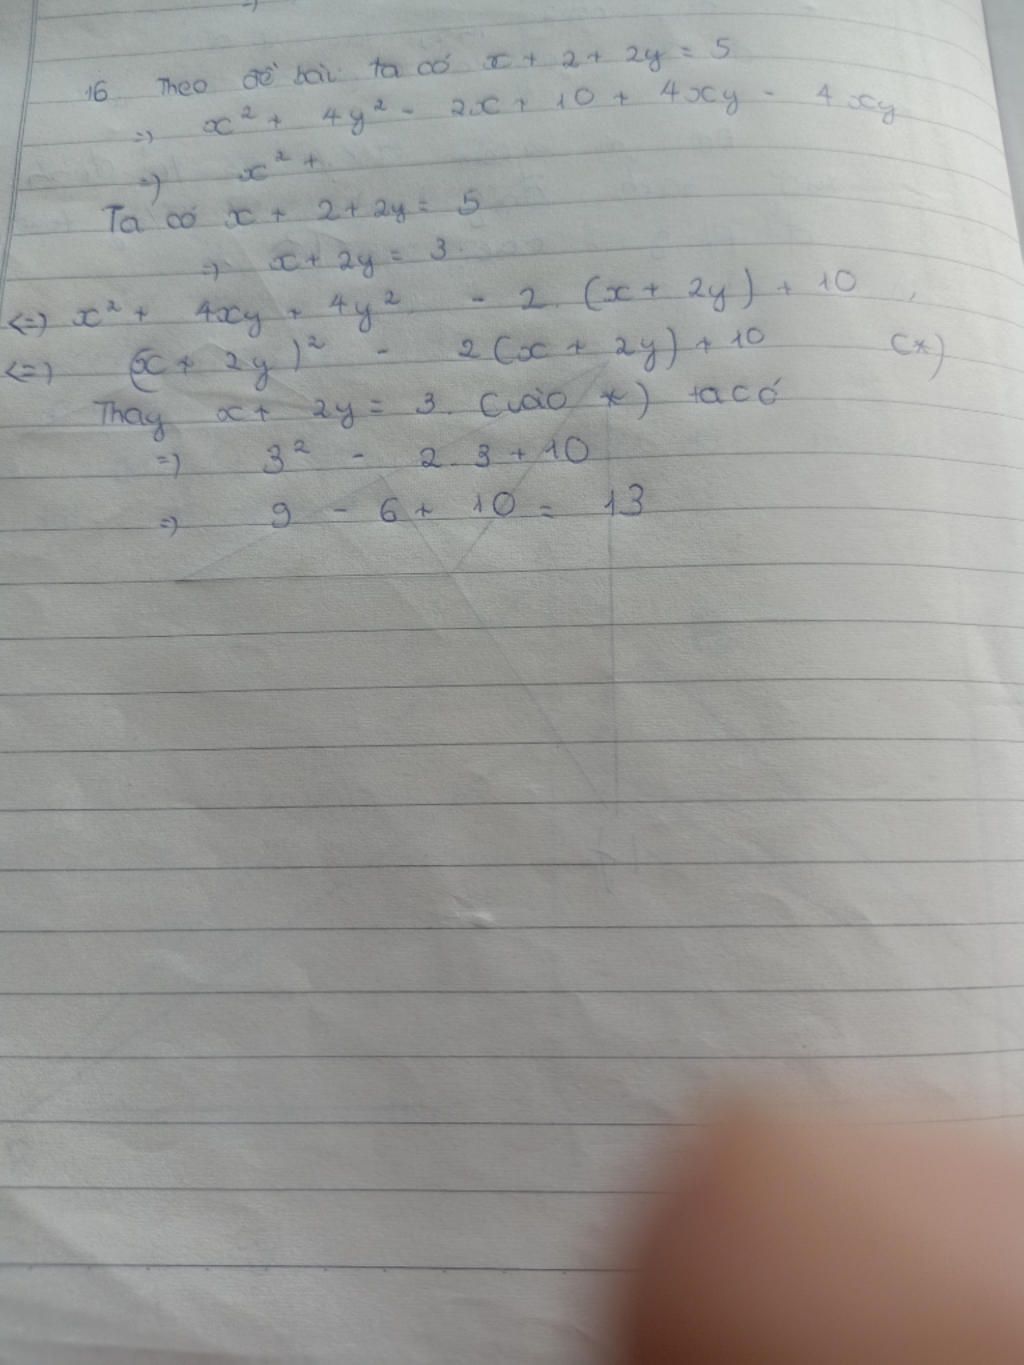 16 Theo đề bài ta có x + 2 + 2y = 5
=> x² + 4y² - 2x + 10 + 4xy - 4xy
=> x² +
Ta có x + 2 + 2y = 5
=> x + 2y = 3
<=> x² + 4xy + 4y² - 2. (x + 2y) + 10
<=> (x + 2y)² - 2(x + 2y) + 10 (*)
Thay x + 2y = 3. (vào *) ta có
=> 3² - 2.3 + 10
=> 9 - 6 + 10 = 13